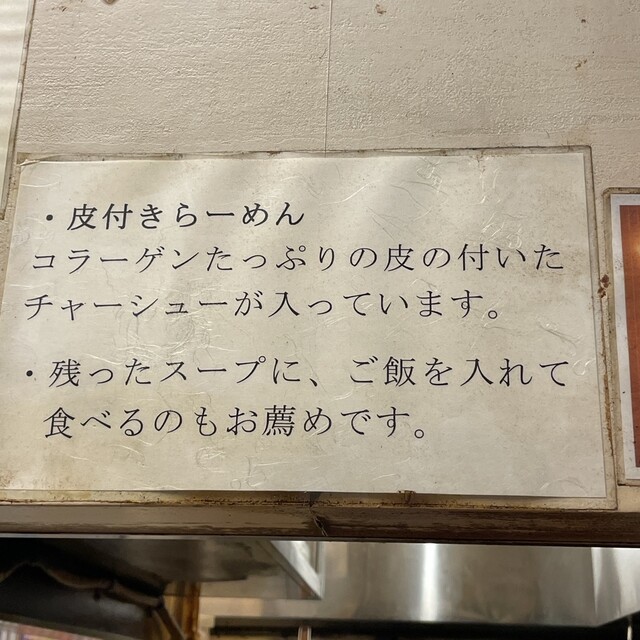 ・皮付きらーめん
コラーゲンたっぷりの皮の付いた
チャーシューが入っています。
・残ったスープに、ご飯を入れて
食べるのもお薦めです。